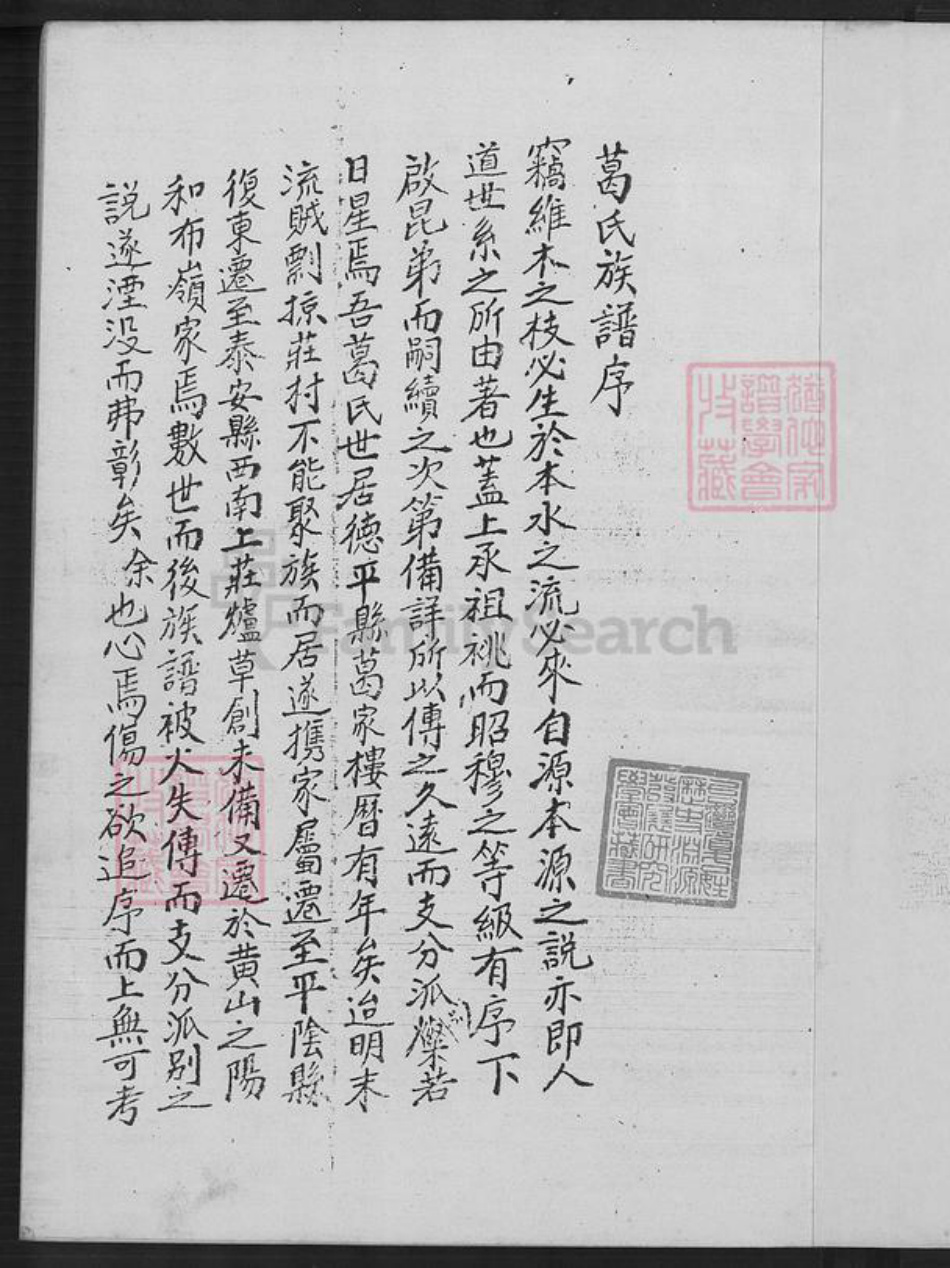 葛氏族譜序
竊維木之枝必生於本水之流必來自源本源之説亦即人
道世系之所由著也蓋上承祖祧而昭穆之等級有序下
啟昆弟而嗣續之次第備詳所以傳之久遠而支分派別燦若
日星焉吾葛氏世居德平縣葛家樓暦有年矣迨明末
流賊剽掠莊村不能聚族而居遂攜家屬遷至平陰縣
復東遷至泰安縣西南上莊爐草創未備又遷於黄山之陽
和布嶺家焉數世而後族譜被火失傳而支分派别之
説遂湮没而弗彰矣余也心焉傷之欲追序而上無可考
譜學會
收藏
FamilySearch